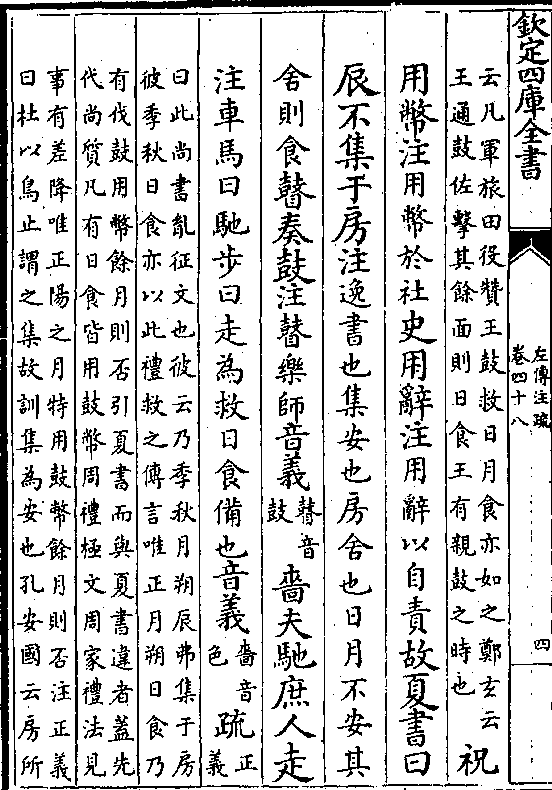 欽定四庫全書
左傳注疏
卷四十八
四
云凡軍旅田役贊王鼓救日月食亦如之鄭玄云
王通鼓佐擊其餘面則日食王有親鼓之時也
祝
用幣注用幣於社史用辭注用辭以自責故夏書曰
辰不集于房注逸書也集安也房舍也日月不安其
舍則食瞽奏鼓注瞽樂師音義
瞽音
鼓
嗇夫馳庶人走
注車馬曰馳步曰走為救日食備也音義
嗇音
色
疏
正
義
曰此尚書𦙍征文也彼云乃季秋月朔辰弗集于房
彼季秋日食亦以此禮救之傳言唯正月朔日食乃
有伐鼓用幣餘月則否引夏書而與夏書違者蓋先
代尚質凡有日食皆用鼓幣周禮極文周家禮法見
事有差降唯正陽之月特用鼓幣餘月則否注正義
曰杜以鳥止謂之集故訓集為安也孔安國云房所